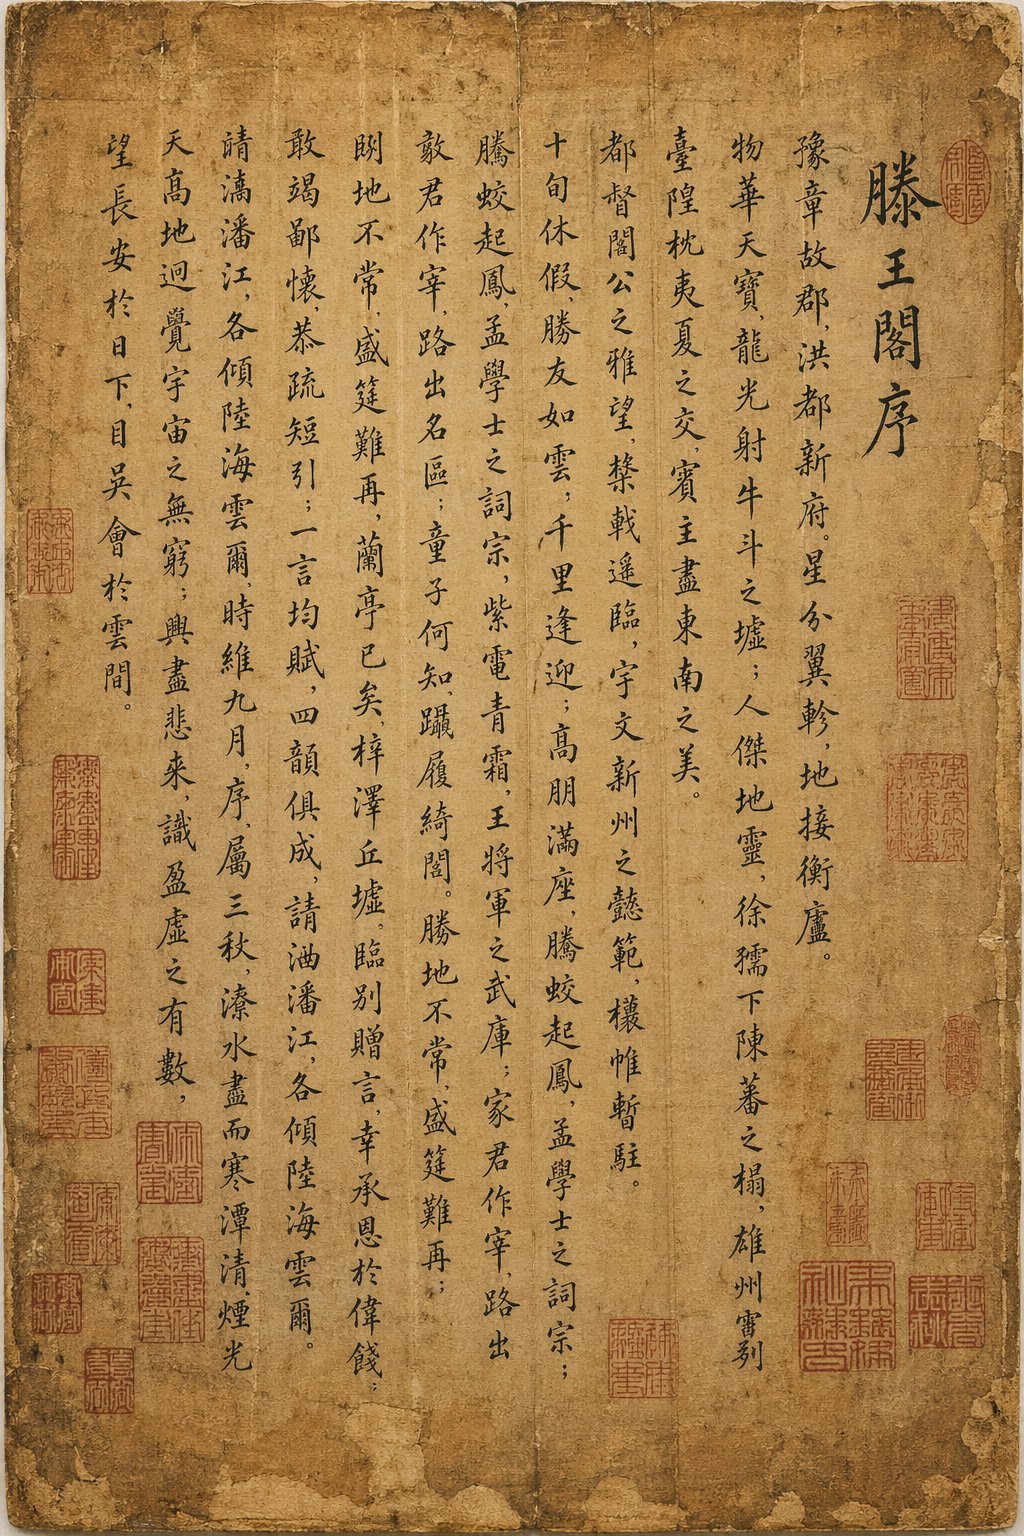 滕王閣序
豫章故郡，洪都新府。星分翼軫，地接衡廬。
物華天寶，龍光射牛斗之墟；人傑地靈，徐孺下陳蕃之榻，雄州霤列
臺隍枕夷夏之交，賓主盡東南之美。
都督閣公之雅望，棨戟遥臨，宇文新州之懿範，欀帷暫駐。
十旬休假，勝友如雲，千里逢迎；高朋滿座，騰蛟起鳳，孟學士之詞宗；
騰蛟起鳳，孟學士之詞宗，紫電青霜，王將軍之武庫；家君作宰，路出
家君作宰，路出名區；童子何知，躡履綺閣。勝地不常，盛筵難再；
地不常，盛筵難再，蘭亭已矣，梓澤丘墟。臨别贈言，幸承恩於偉餞；
敢竭鄙懷，恭疏短引；一言均賦，四韻俱成，請洒潘江，各傾陸海雲爾。
請漓潘江，各傾陸海雲爾，時維九月，序，屬三秋，潦水盡而寒潭清，煙光
天高地迥覺宇宙之無窮；興盡悲來，識盈虛之有數，
望長安於日下，目吳會於雲間。